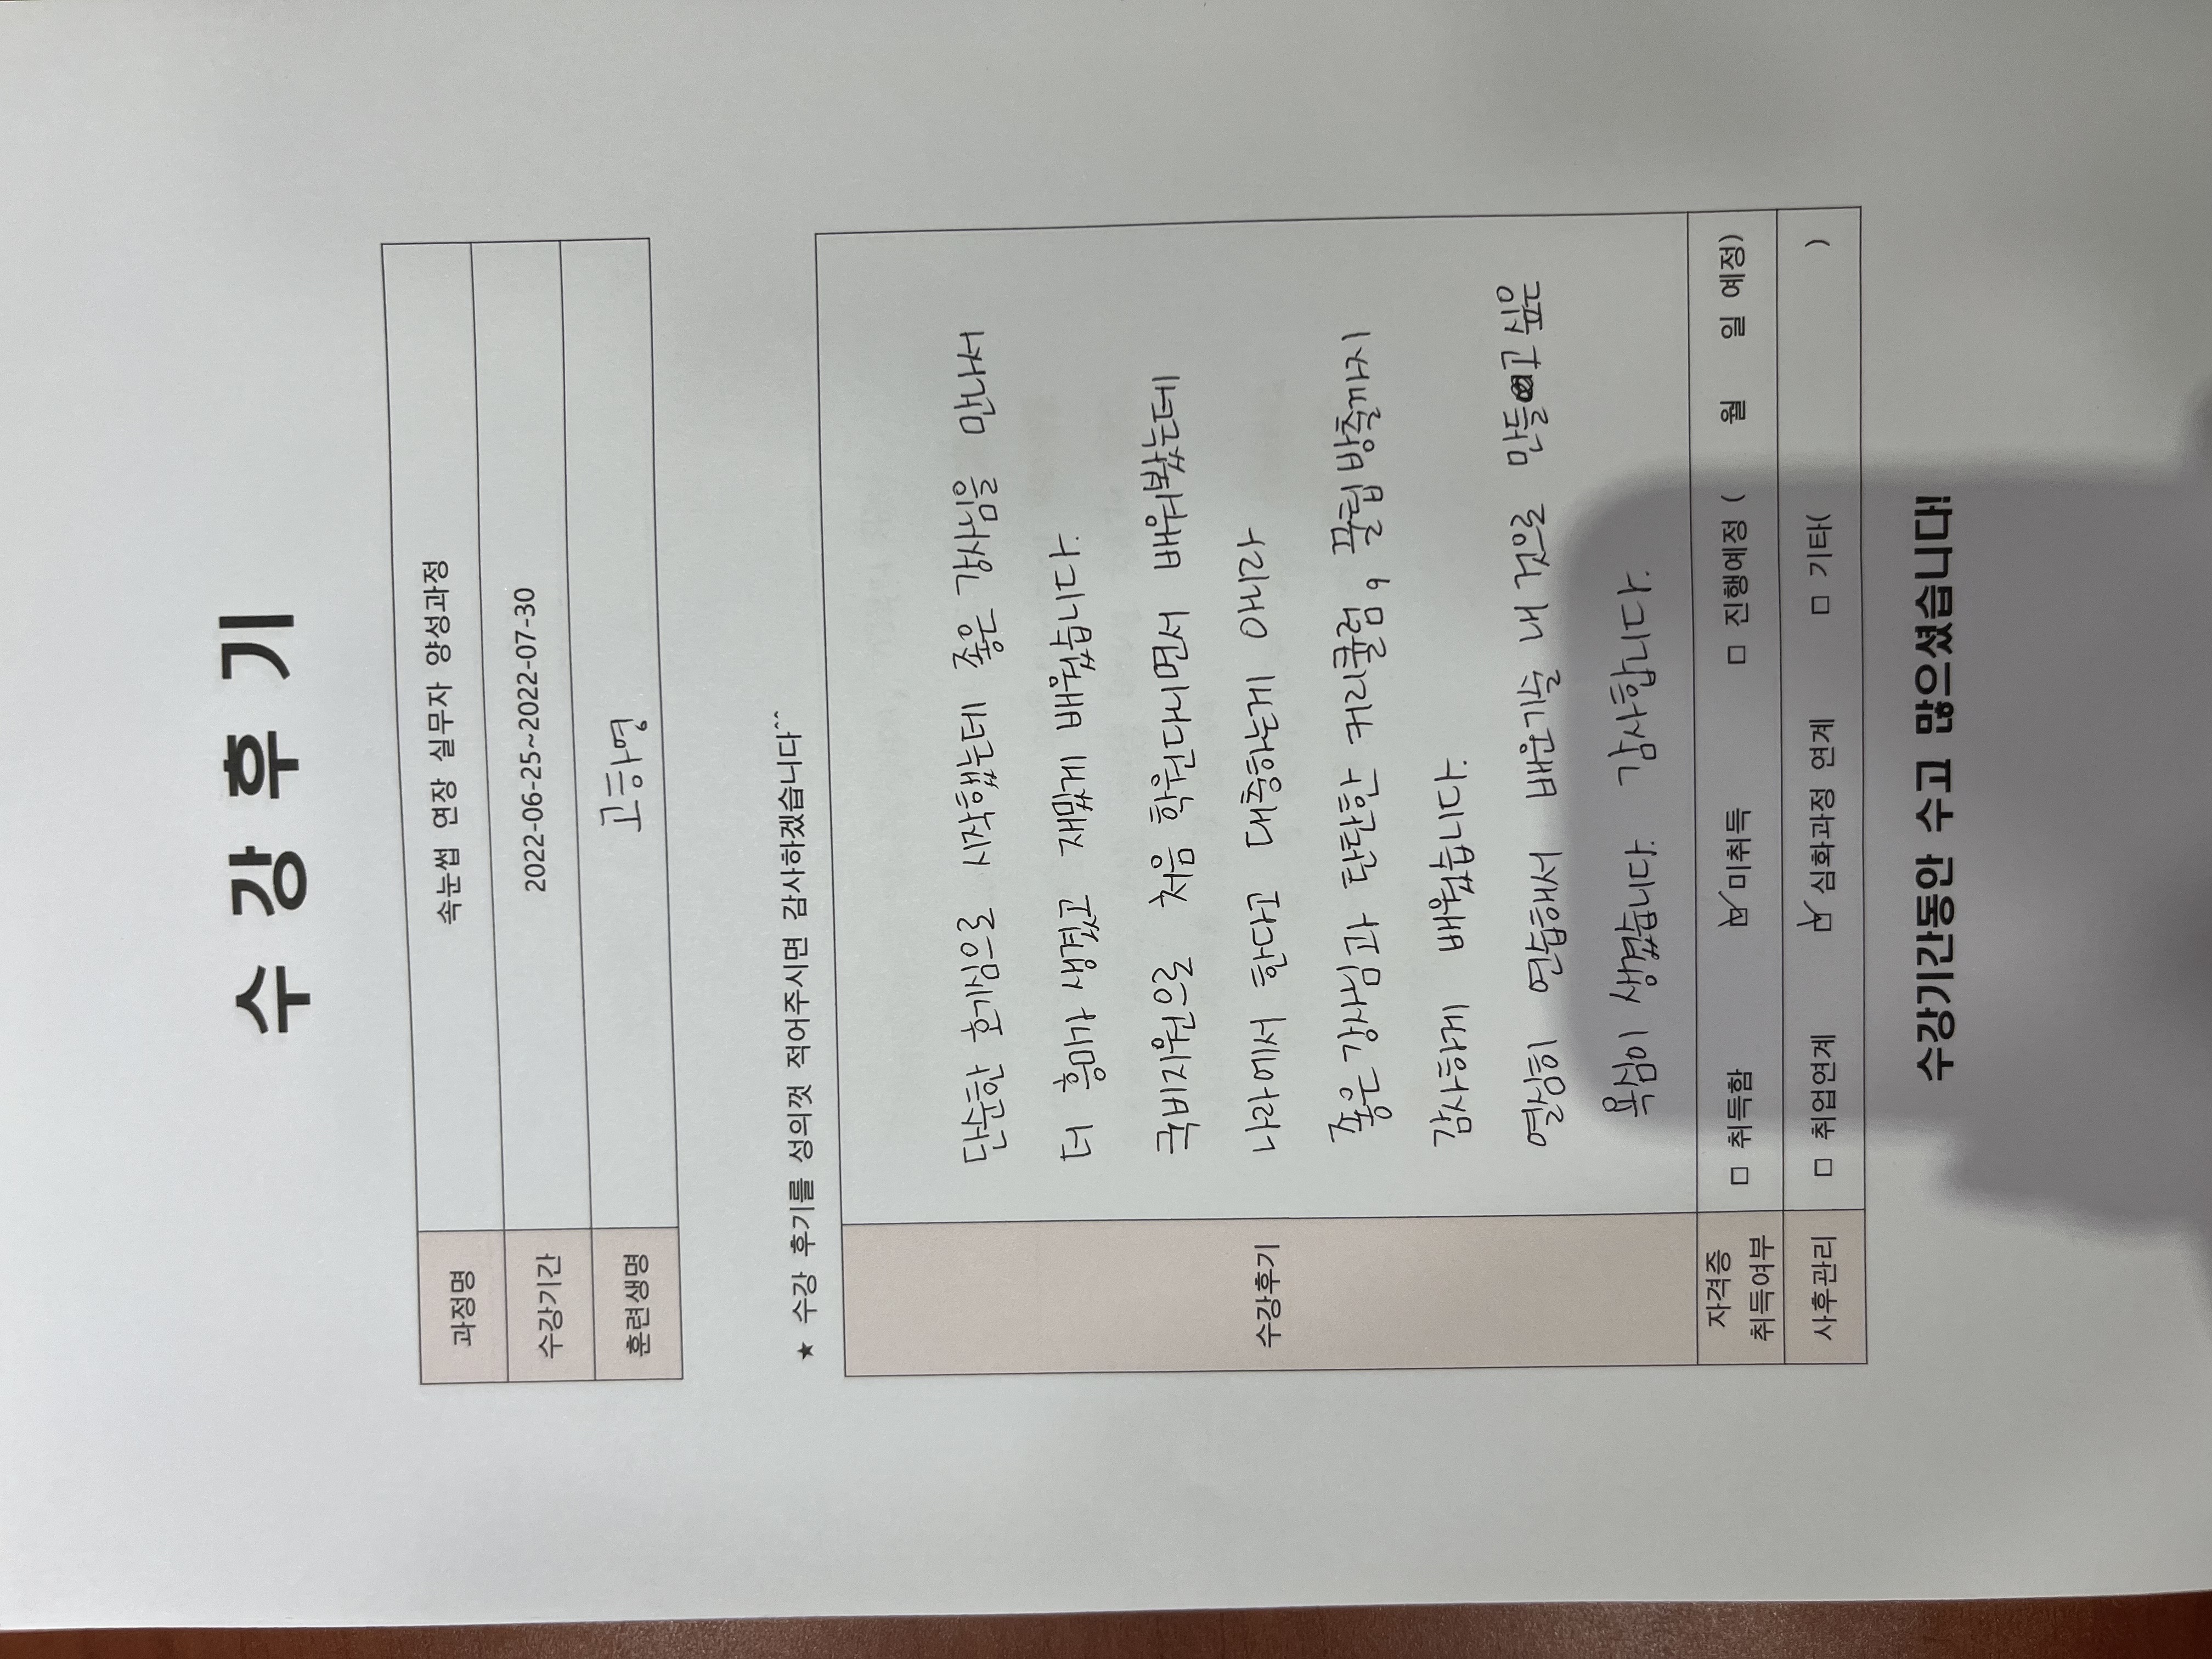 수 강 후 기
과정명 속눈썹 연장 실무자 양성과정
수강기간 2022-06-25~2022-07-30
훈련생명 고하영
★ 수강 후기를 성의껏 적어주시면 감사하겠습니다^^
수강후기
단순한 호기심으로 시작했는데 좋은 강사님을 만나서
더 흥미가 생겼고 재밌게 배웠습니다.
국비지원으로 처음 학원다니면서 배워봤는데
나라에서 한다고 대충하는게 아니라
좋은 강사님과 탄탄한 커리큘럼, 꿀팁방출까지
감사하게 배웠습니다.
열심히 연습해서 배운기술 내 것으로 만들고 싶은
욕심이 생겼습니다. 감사합니다.
자격증 취득여부 □ 취득함 ☑ 미취득 □ 진행예정 ( 월 일 예정)
사후관리 □ 취업연계 ☑ 심화과정 연계 □ 기타( )
수강기간동안 수고 많으셨습니다!